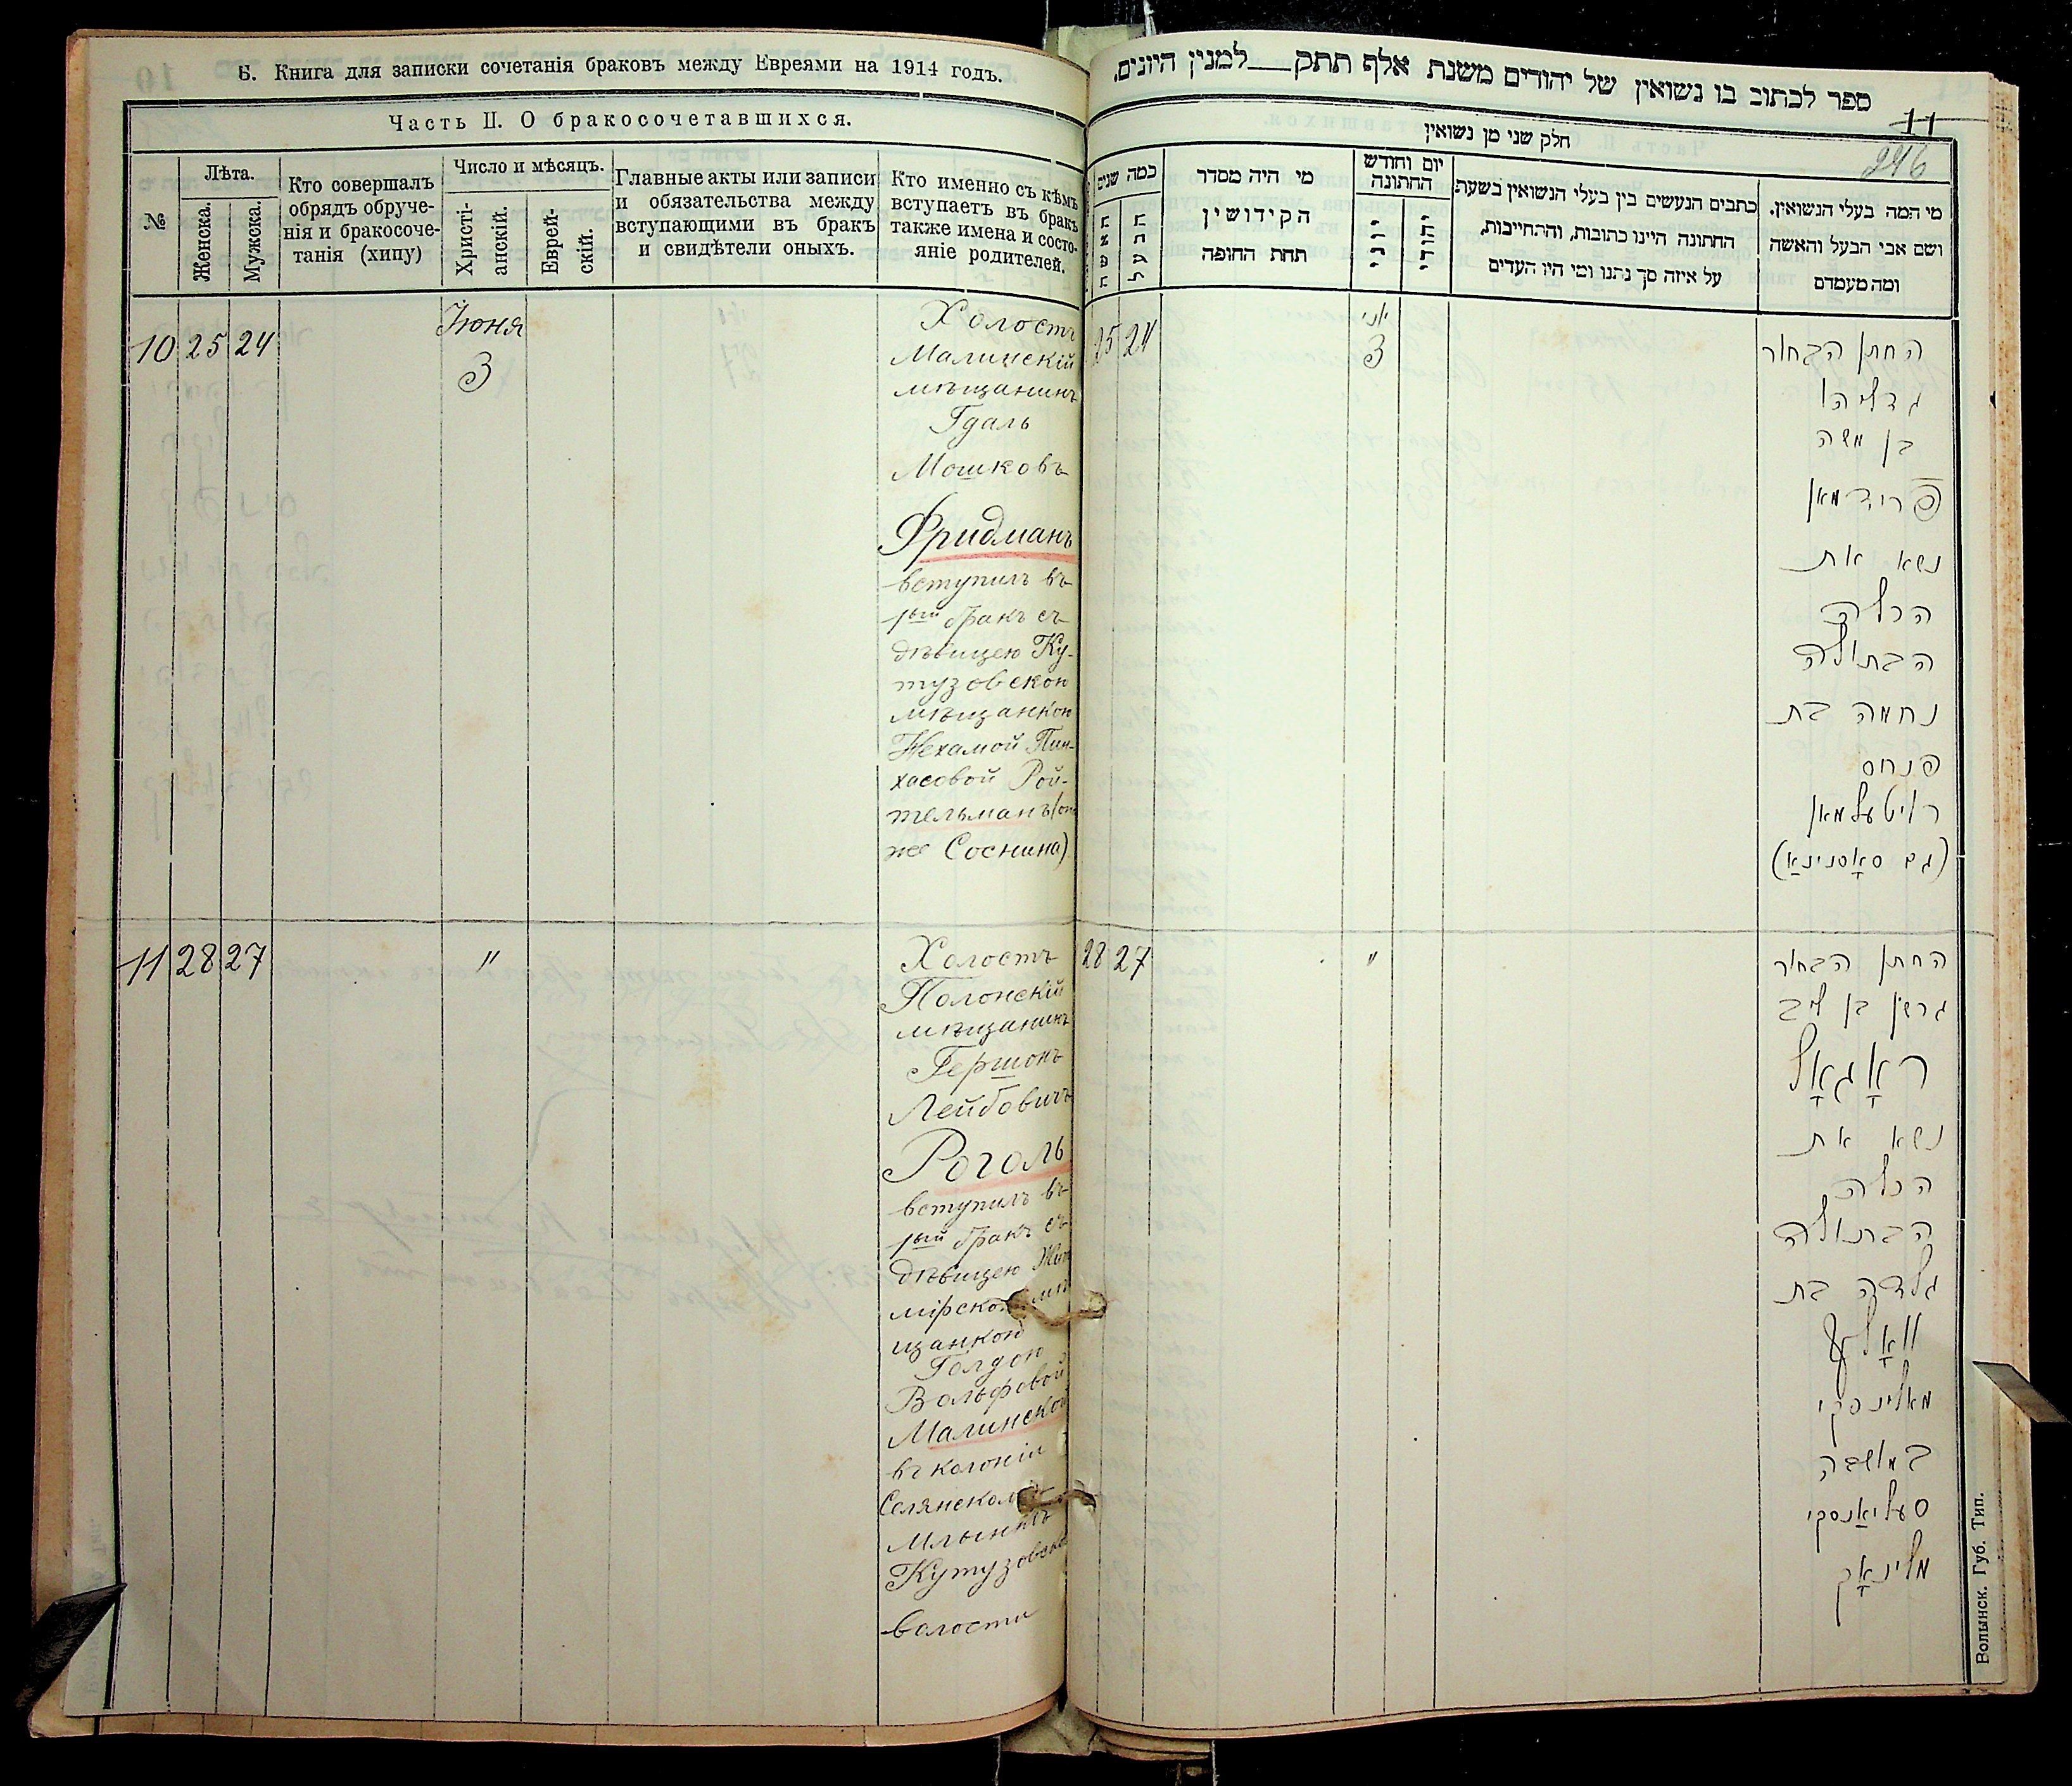 Б. Книга для записки сочетанія браковъ между Евреями на 1914 годъ.
Часть II. О бракосочетавшихся.
№
Лѣта.
Женска.
Мужска.
Кто совершалъ
обрядъ обруче-
нія и бракосоче-
танія (хипу)
Число и мѣсяцъ.
Христі-
анскій.
Еврей-
скій.
Главные акты или записи
и обязательства между
вступающими въ бракъ
и свидѣтели оныхъ.
Кто именно съ кѣмъ
вступаетъ въ бракъ
также имена и состо-
яніе родителей.
10 25 24
Іюня
3
Холостъ
Малинскій
мѣщанинъ
Гдаль
Мошковъ
Фридманъ
вступилъ въ
1ый бракъ съ
дѣвицею Ку-
тузовскою
мѣщанкою
Нехамой Пин-
хасовой Рой-
тельманъ (она
же Соснина)
11 28 27
"
Холостъ
Полонскій
мѣщанинъ
Гершонъ
Лейбовичъ
Роголь
вступилъ въ
1ый бракъ съ
дѣвицею Жито
мірской мѣ
щанкою
Голдою
Вольфовой
Малинской
въ колоніи
Селянскомъ
Млынкѣ
Кутузовской
волости
ספר לכתוב בו נשואין של יהודים משנת אלף תתק למנין היונים.
11
246
חלק שני מן נשואין
כמה שנים
האשה
הבעל
מי היה מסדר
הקידושין
תחת החופה
יום וחודש
החתונה
יוני
יהודי
כתבים הנעשים בין בעלי הנשואין בשעת
החתונה היינו כתובות, והתחייבות,
על איזה סך נתנו ומי היו העדים
מי המה בעלי הנשואין.
ושם אבי הבעל והאשה
ומה מעמדם
25 24
יוני
3
החתן הבחור
גדליהו
בן משה
פרידמאן
נשא את
הכלה
הבתולה
נחמה בת
פנחס
רויטעלמאן
(גם סאָסנינאַ)
28 27
"
החתן הבחור
גרשון בן ליב
ראָגאָל
נשא את
הכלה
הבתולה
גולדה בת
וואָלף
מאלינסקי
במושבה
סעליאַנסקי
מלינאָק
Волынск. Губ. Тип.